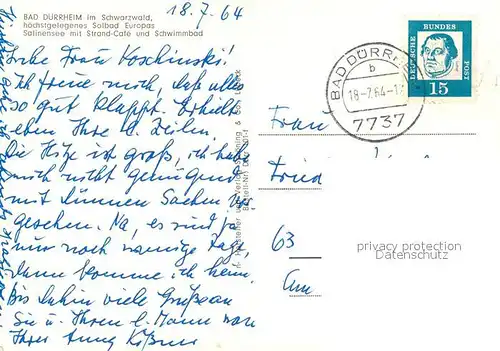 18.7.64
BAD DÜRRHEIM im Schwarzwald,
höchstgelegenes Solbad Europas
Salinensee mit Strand-Café und Schwimmbad
Liebe Frau Koschinski!
Ich freue mich, daß alles
so gut klappt. Erhielt
eben Ihre l. Zeilen.
Die Hitze ist groß, ich habe
mich nicht genügend
mit dünnen Sachen ver
gesehen. Na, es sind ja
nur noch wenige Tage,
dann komme ich heim.
Bis dahin viele Grüße an
Sie u. Ihren l. Mann von
Ihrer
DEUTSCHE BUNDESPOST
15
BAD DÜRR
b
18-7.64-1
7737
Frau
Fried
63
privacy protection
Datenschutz